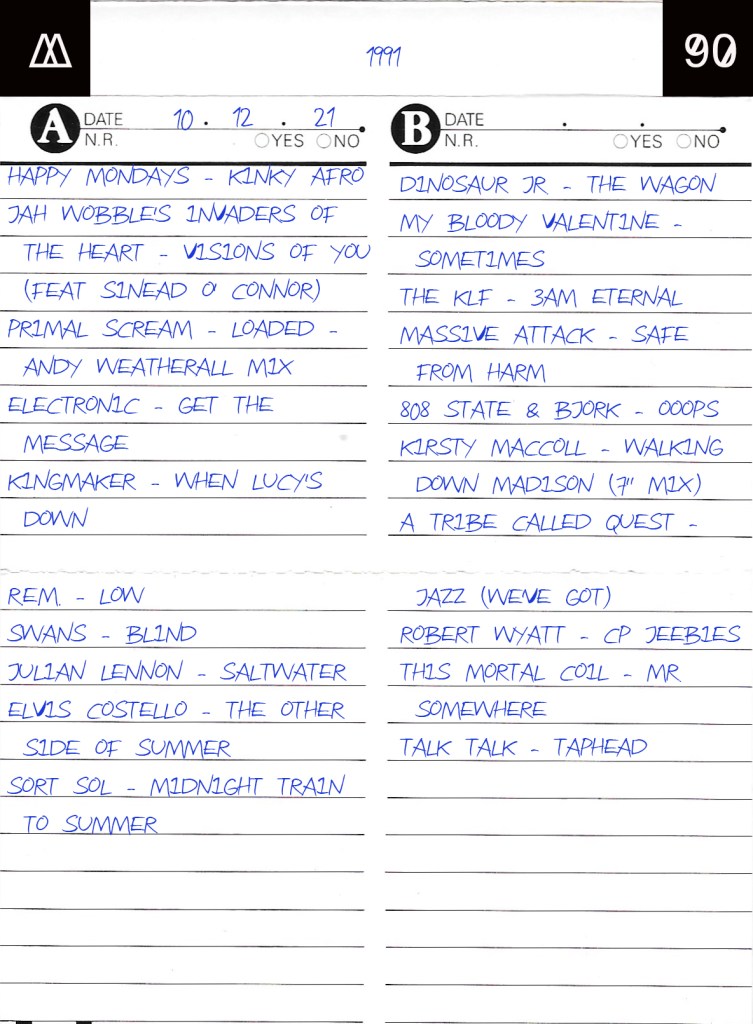 1991
90
A DATE 10 . 12 . 21
N.R. YES NO
HAPPY MONDAYS - KINKY AFRO
JAH WOBBLE'S INVADERS OF
THE HEART - VISIONS OF YOU
(FEAT SINEAD O' CONNOR)
PRIMAL SCREAM - LOADED -
ANDY WEATHERALL MIX
ELECTRONIC - GET THE
MESSAGE
KINGMAKER - WHEN LUCY'S
DOWN
REM. - LOW
SWANS - BLIND
JULIAN LENNON - SALTWATER
ELVIS COSTELLO - THE OTHER
SIDE OF SUMMER
SORT SOL - MIDNIGHT TRAIN
TO SUMMER
B DATE . .
N.R. YES NO
DINOSAUR JR - THE WAGON
MY BLOODY VALENTINE -
SOMETIMES
THE KLF - 3AM ETERNAL
MASSIVE ATTACK - SAFE
FROM HARM
808 STATE & BJORK - OOOPS
KIRSTY MACCOLL - WALKING
DOWN MADISON (7" MIX)
A TRIBE CALLED QUEST -
JAZZ (WE'VE GOT)
ROBERT WYATT - CP JEEBIES
THIS MORTAL COIL - MR
SOMEWHERE
TALK TALK - TAPHEAD